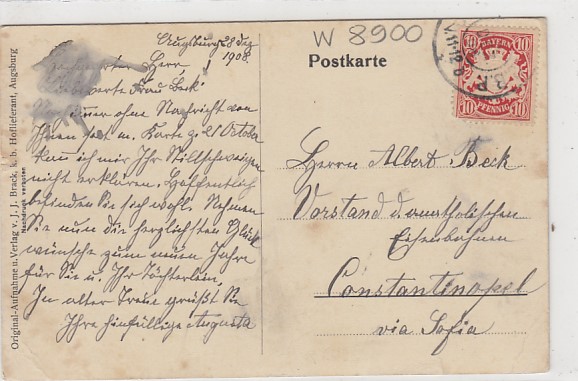 W 8900
Postkarte
BAYERN
10 10
10 10
PFENNIG
Augsburg 28 Dez
1908.
Herr
werte Frau Beck!
Immer ohne Nachricht von
Ihnen seit m. Karte z. 21 Octobe
kann ich mir Ihr Stillschweigen
nicht erklären. Hoffentlich
befinden Sie sich wohl. Nehmen
Sie nun die herzlichsten Glück
wünsche zum neuen Jahre
für Sie u. Ihr Töchterlein.
In alter Treue grüßt Sie
Ihre hinfällige Augusta
Herrn Albert Beck
Vorstand d. anatholischen
Eisenbahnen
Constantinopel
via Sofia
Original-Aufnahme u. Verlag v. J. J. Brack, k. b. Hoflieferant, Augsburg
Nachdruck verboten